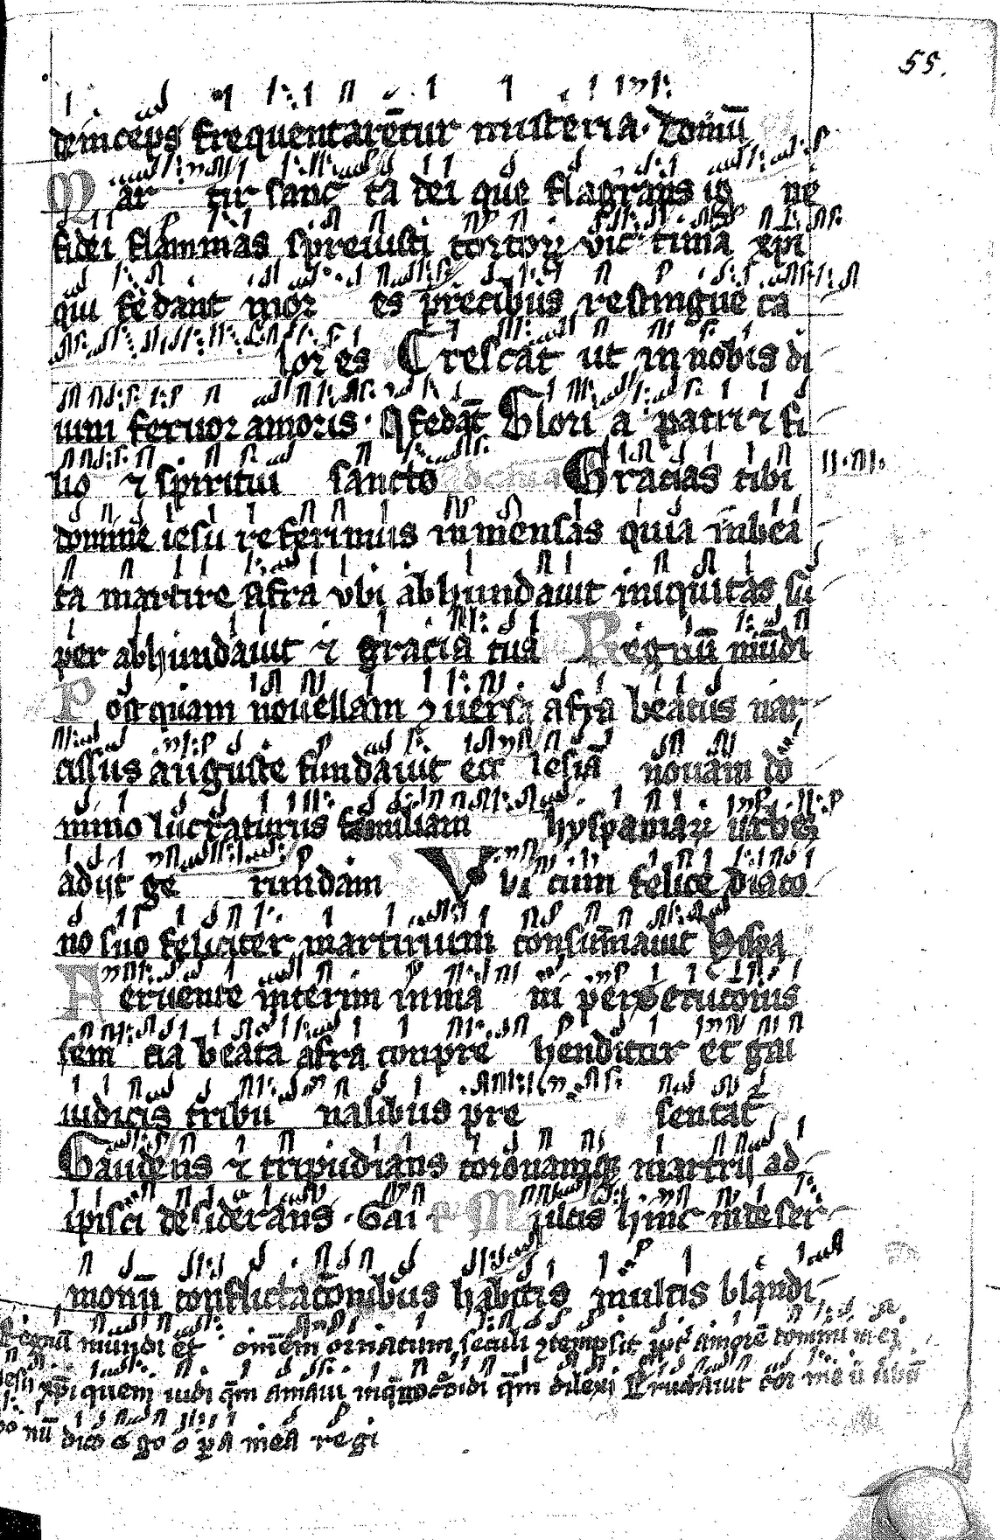 55.
deinceps frequentarētur misteria. Domū
Mar tir sanc ta dei que flagrans in ne
fidei flammas spreuisti tortor vic tima xpi
qui fedant mor es precibus restingue ca
lor es Crescat ut in nobis di
uini feruor amoris. Q fedāt Glori a patri ⁊ fi
lio ⁊ spiritui sancto Gracias tibi
domine iesu referimus inmensas quia in bea
ta martire Afra vbi abhundauit iniquitas su
per abhundauit ⁊ gracia tua Regnū mūdi
Postquam nouellam ꝯuersa afra beatus nar
cissus auguste fundauit ecc lesiā nouam do
mino lucraturus familiam hyspaniaꝝ urbem
adijt ge rundam Vbi cum felice diaco
no suo feliciter martirium consūmauit Hispa
Feruente interim inma ni persecutonis
sem cia beata afra conpre henditur et gai
iudicis tribu nalibus pre sentat
Gaudens ⁊ tripudians coronamqꝫ martrij ad
ipisci desiderans. Gai Multis hinc inde ser
monū conflictatonibus habitis multis blandi
Regnū mundi et omēm ornatum seculi ꝯtempsit ppt amorē domini m ei
iesu xpi quem uidi qm amaui in quo c̄didi qm dilexi Eructauit cor meū ubū
bonū dico ego opa mea regi